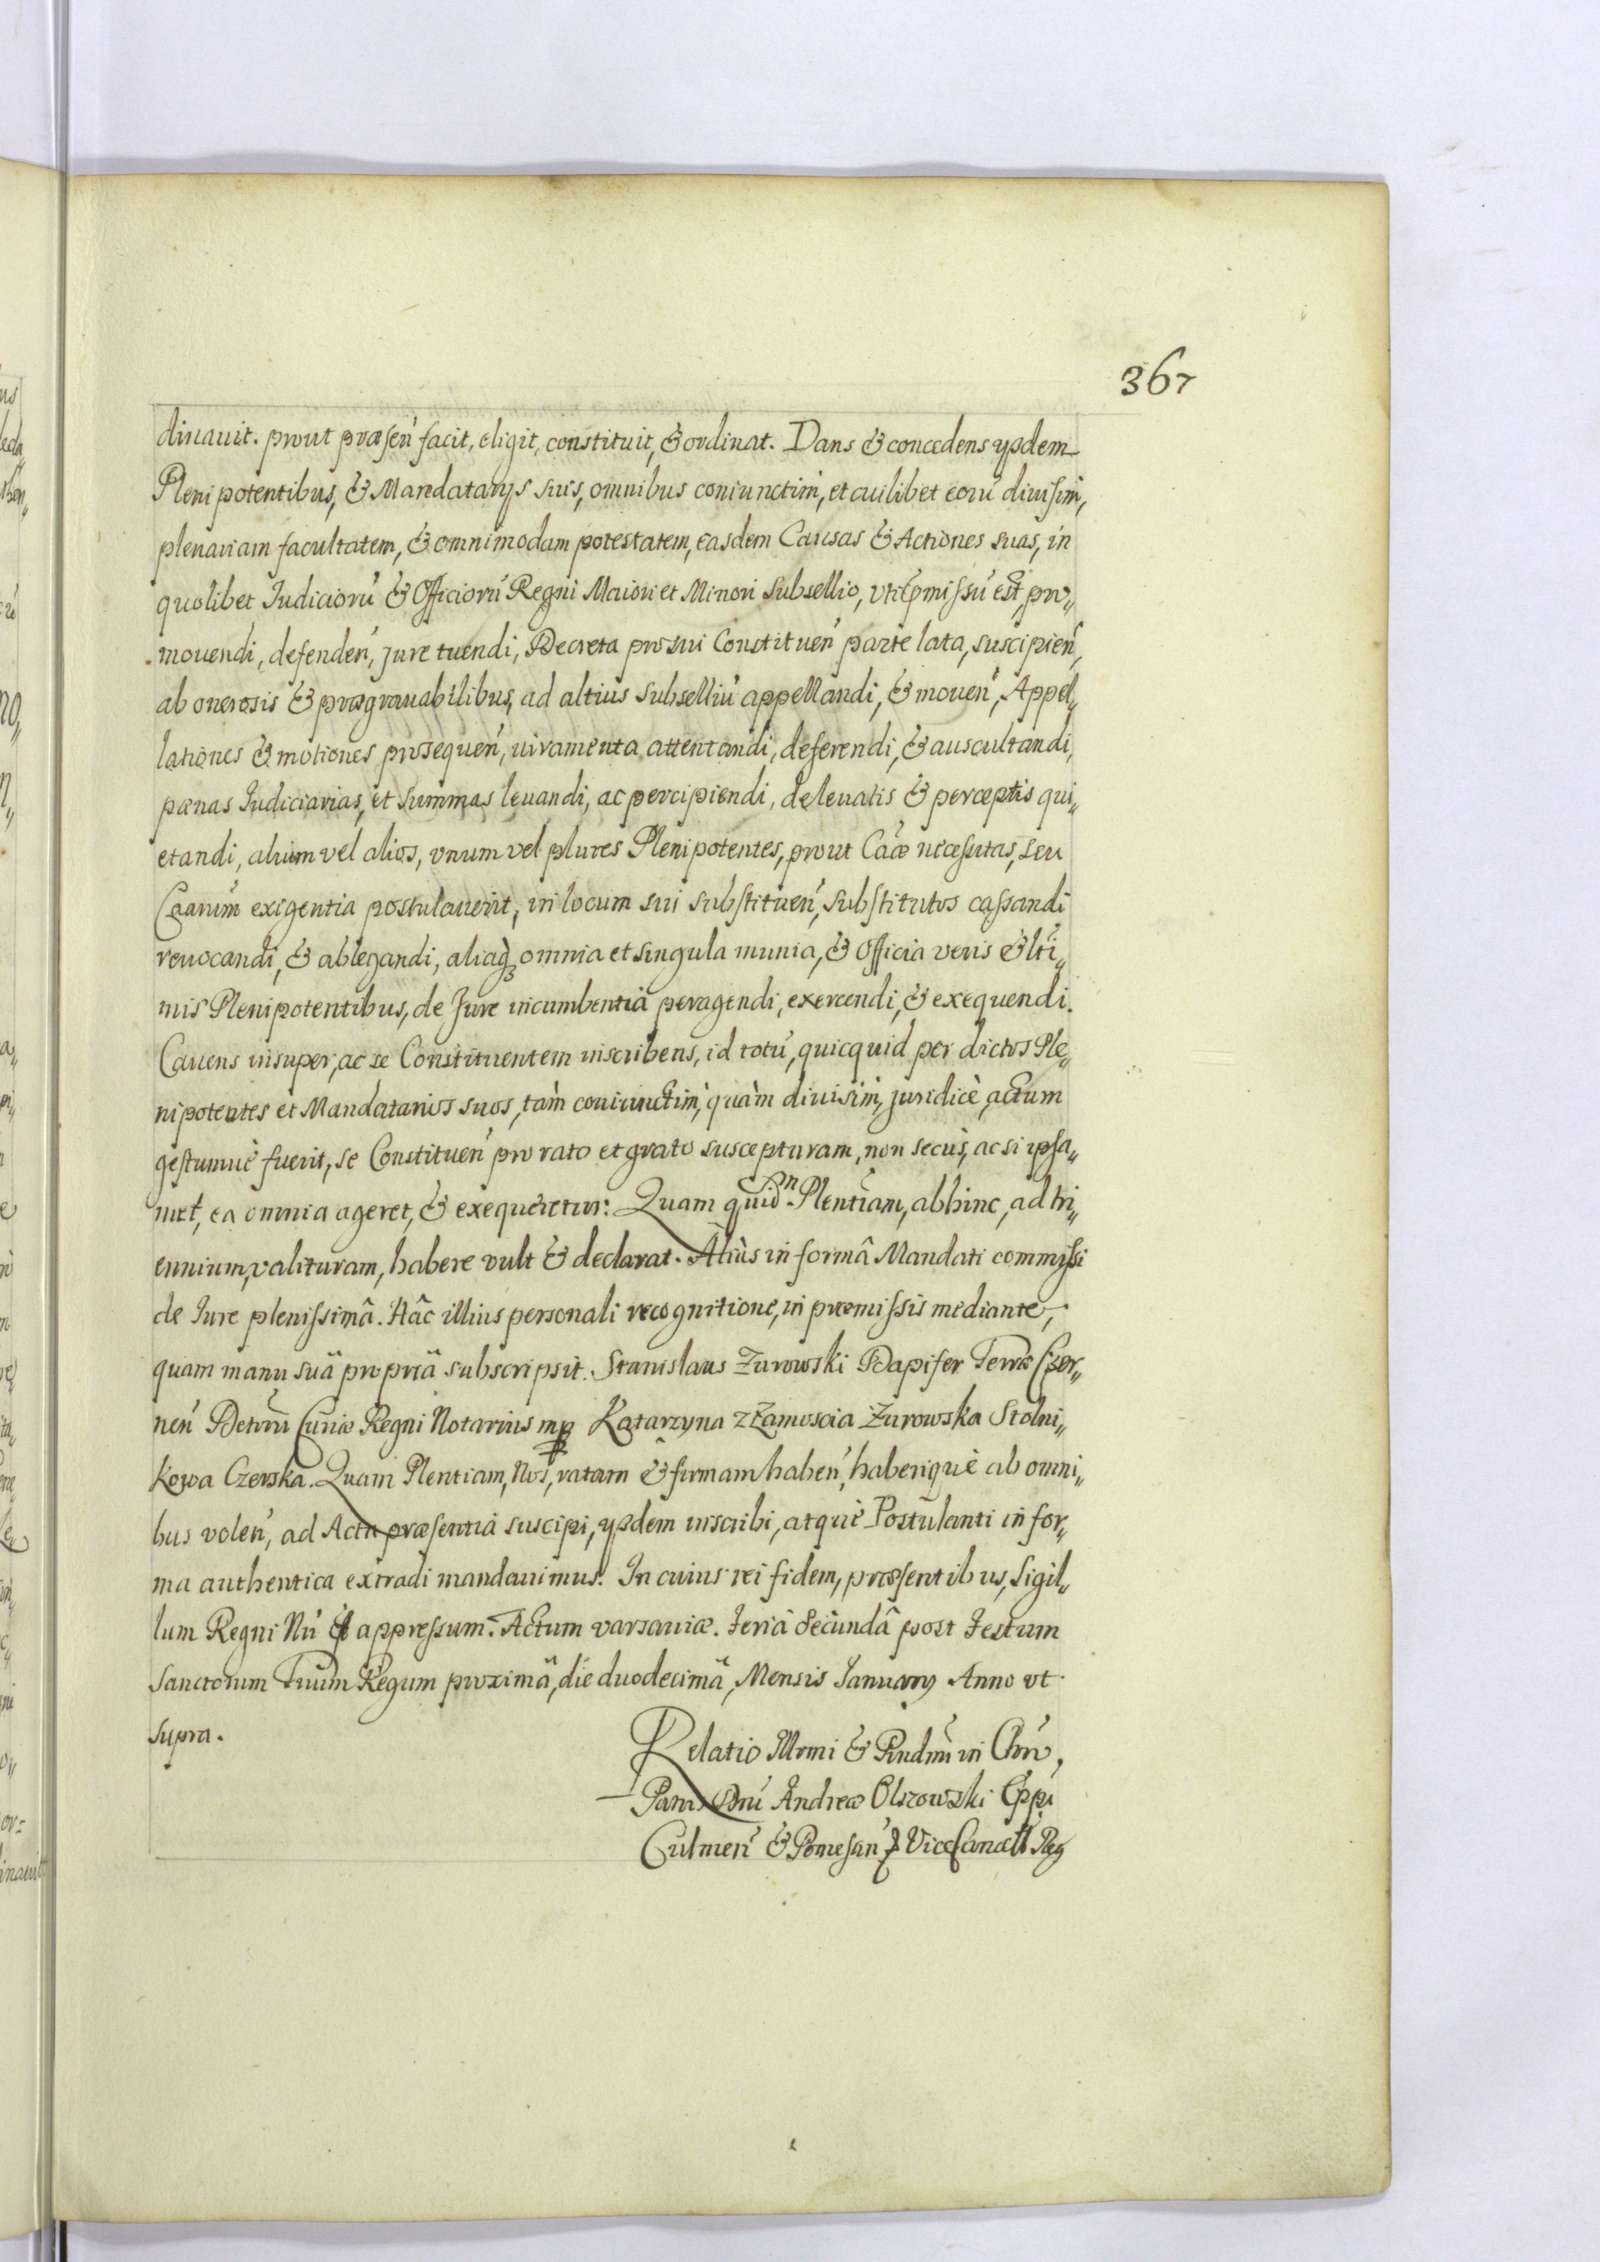 367
dinauit. prout præsen̄ facit, eligit, constituit, & ordinat. Dans & concedens ysdem
Plenipotentibus, & Mandatarys suis, omnibus coniunctim, et cuilibet eorū diuisim,
plenariam facultatem, & omnimodam potestatem, easdem Causas & Actiones suas, in
quolibet Iudiciorū & Officiorū Regni Maiori et Minori subsellio, vti p̄missū est, pro„
mouendi, defenden̄, jure tuendi, Decreta pro sui Constituen̄ parte lata, suscipien̄,
ab onerosis & prægrauabilibus, ad altius subselliū appellandi, & mouen̄, Appel„
lationes & motiones prosequen̄, iuramenta attentandi, deferendi, & auscultandi,
pænas Iudiciarias, et summas leuandi, ac percipiendi, de leuatis & perceptis qui„
etandi, alium vel alios, vnum vel plures Plenipotentes, prout Cāæ necessitas, seu
Caarum̄ exigentia postulauerit, in locum sui substituen̄, substitutos cassandi
reuocandi, & ablegandi, aliaq₃ omnia et singula munia, & Officia veris & lti„
mis Plenipotentibus, de Jure incumbentia peragendi, exercendi, & exequendi.
Cauens insuper, ac se Constituentem inscribens, id totū, quicquid per dictos Ple„
nipotentes et Mandatarios suos, tàm coniunctim, quàm diuisim, juridicè actum
gestumuè fuerit, se Constituen̄ pro rato et grato suscepturam, non secus, ac si ipsa„
met, ea omnia ageret, & exequeretur: Quam quid̄n Plentiam, abhinc, ad tri„
ennium, valituram, habere vult & declarat. Aliùs in formâ Mandati commissi
de Iure plenissimâ. Hâc illius personali recognitione, in præmissis mediante,
quam manu suâ propriâ subscripsit. Stanislaus Żurowski Dapifer Terræ Czer„
nen̄ Detrūm Curiæ Regni Notarius mp Katarzyna z Zamoscia Żurowska Stolni„
kowa Czerska. Quam Plentiam, Nos, ratam & firmam haben̄, haberiquè ab omni„
bus volen̄, ad Acta præsentia suscipi, ysdem inscribi, atquè Postulanti in for„
ma authentica extradi mandauimus. In cuius rei fidem, præsentibus, Sigil„
lum Regni Nrū est appressum. Actum varsauiæ. feriâ secundâ post festum
sanctorum Trium Regum proximâ, die duodecimâ, Mensis Ianuary Anno vt
supra.
Relatio Illrmi & Rndmi in Chrō,
Patris Dnī Andreæ Olszowski Eppi
Culmen̄ & Pomesan̄ ViceCancelł Reg